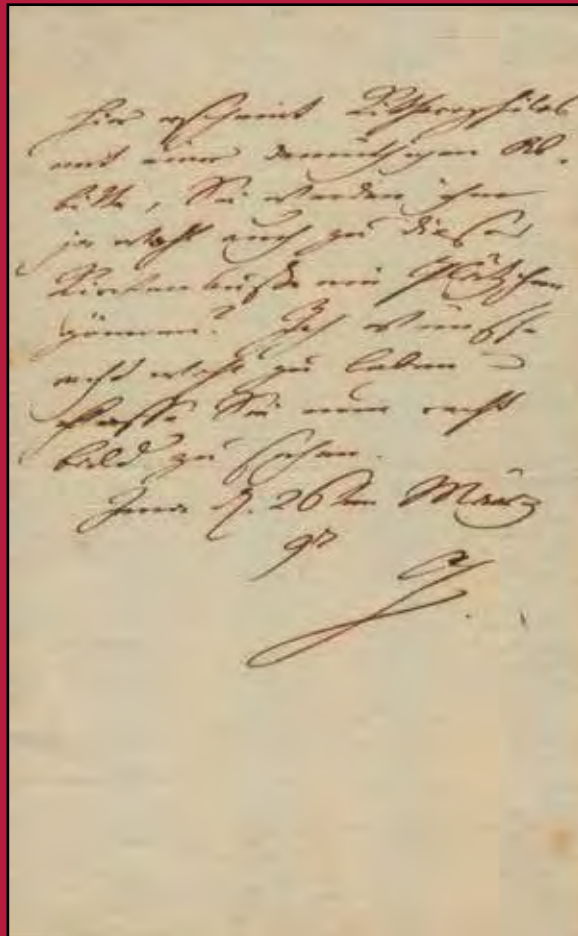 Hier erscheint
mit einer demüthigen Ab-
bitte, Sie werden ihm
ja wohl auch zu dieser
Kirchenbuße ein Plätzchen
gönnen? Ich wünsche
recht wohl zu leben
hoffe Sie nun recht
bald zu sehen.
Jena d. 26ten März
97